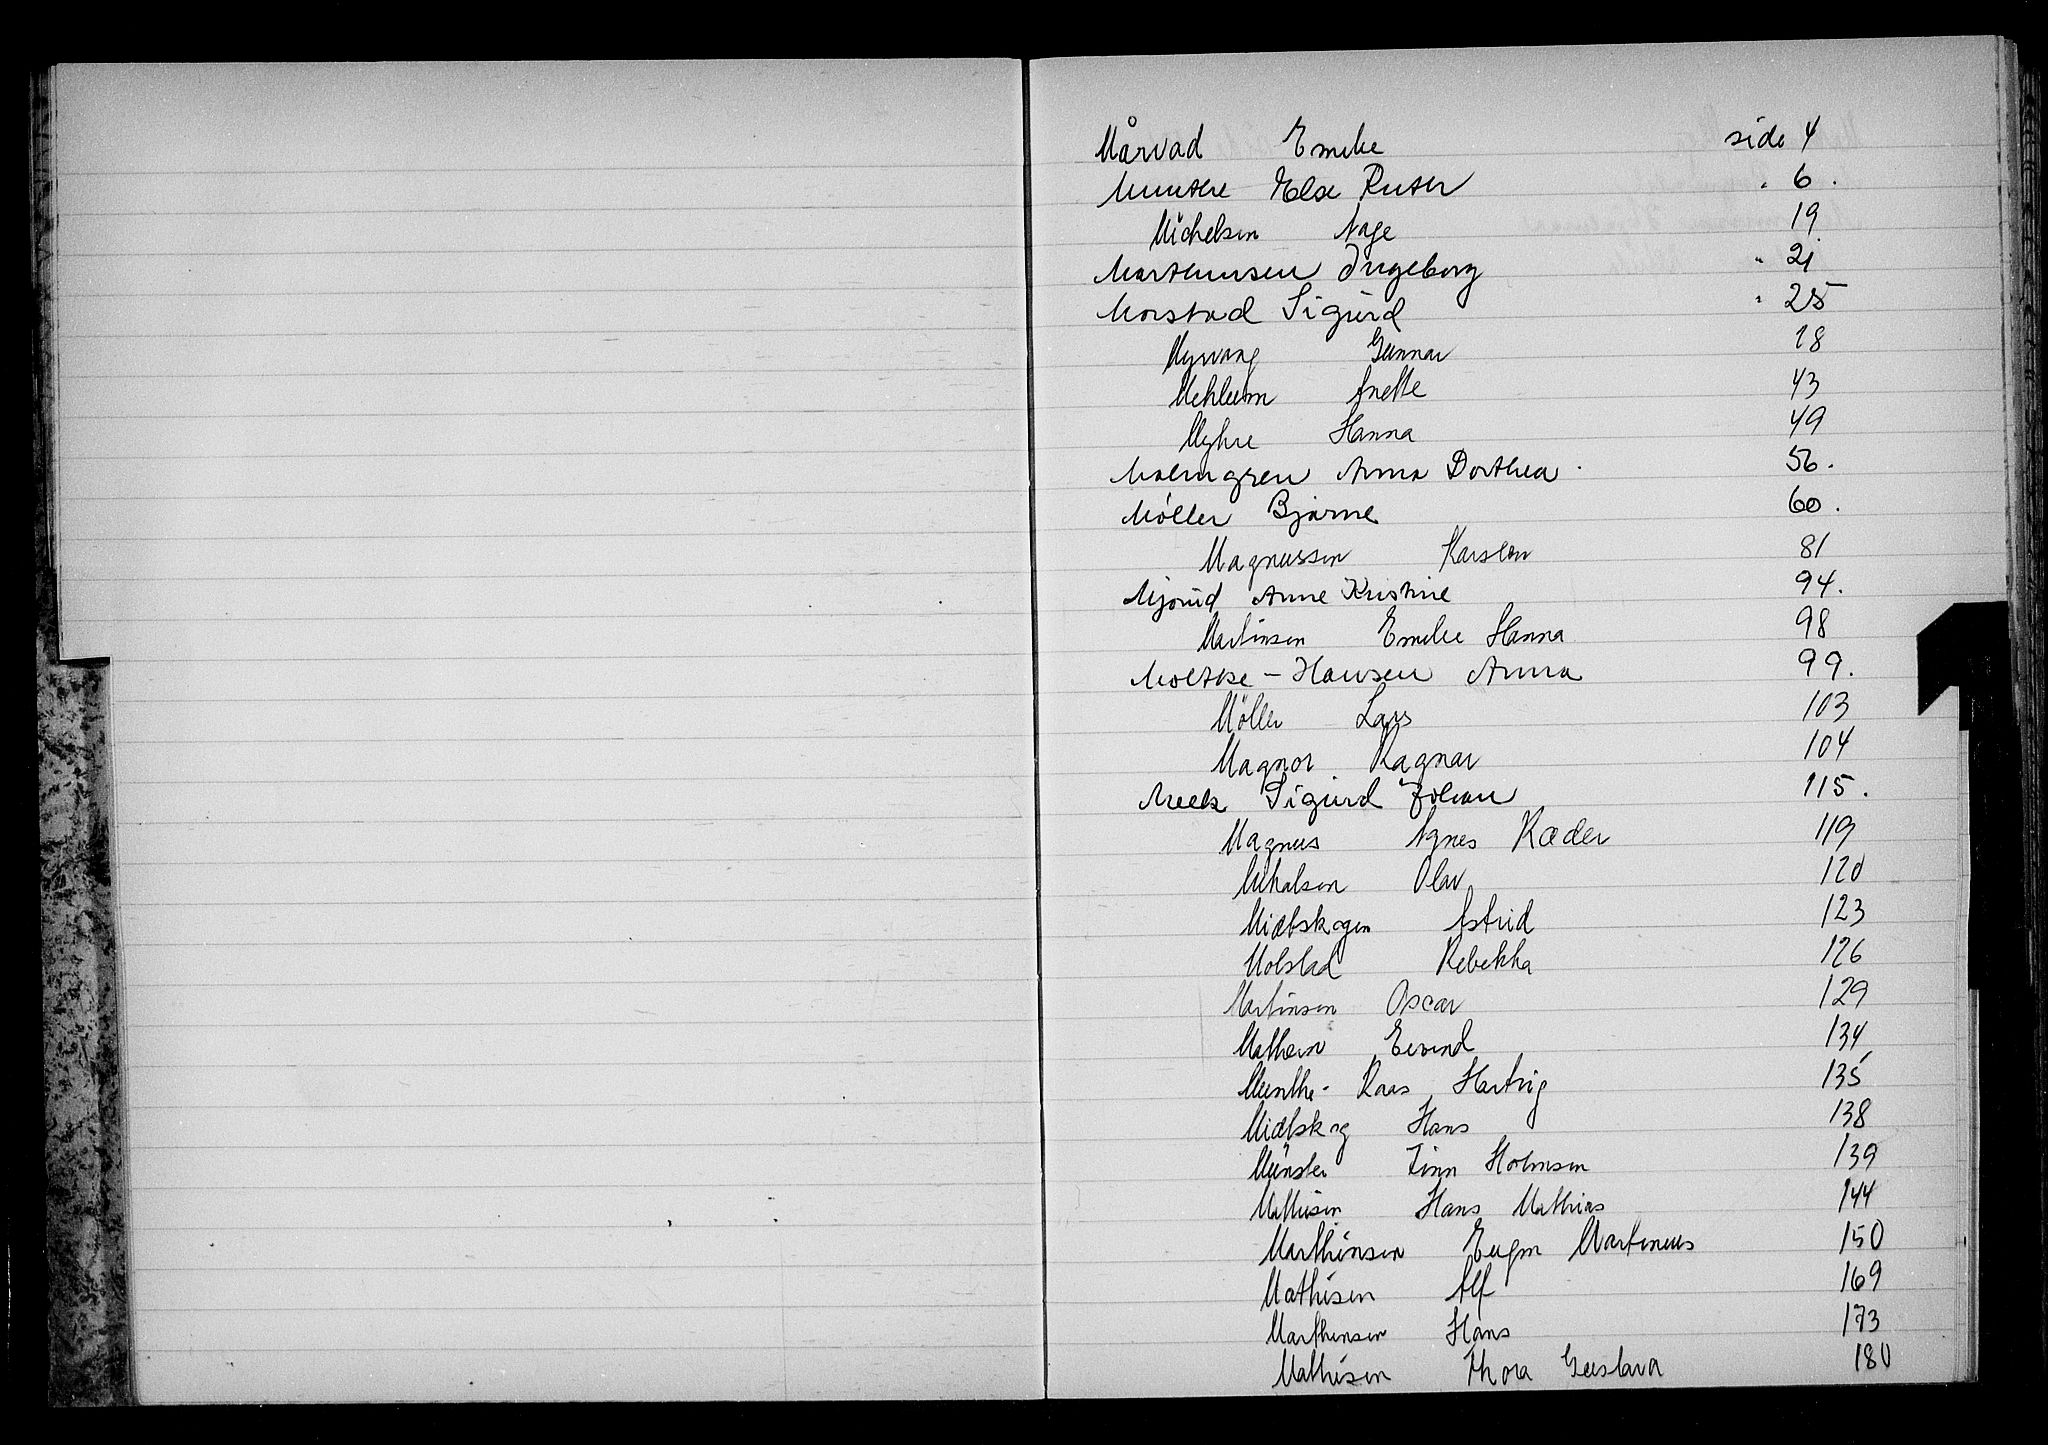 Mårvad Emilie side 4
Munthe Else Ruth " 6.
Michelsen Aage 19
Marthinsen Ingeborg " 21
Morstad Sigurd " 25
Myrvang Gunnar 28
Mehlum Anette 43
Myhre Hanna 49
Malmgren Anna Dorthea. 56.
Møller Bjarne 60.
Magnussen Karsten 81
Mjørud Anne Kristine 94.
Martinsen Emilie Hanna 98
Moltke-Hansen Anna 99.
Møller Lars 103
Magnor Ragnar 104
Meek Sigurd Johan 115.
Magnus Agnes Ræder 119
Mikalsen Olav 120
Midtskogen Astrid 123
Molstad Rebekka 126
Martinsen Oscar 129
Mathern Eivind 134
Munthe-Kaas, Hartvig 135
Midtskog Hans 138
Münster Finn Holmsen 139
Mathisen Hans Mathias 144
Marthinsen Eugen Martinius 150
Mathisen Alf 169
Marthinsen Hans 173
Mathisen Thora Gustava 180